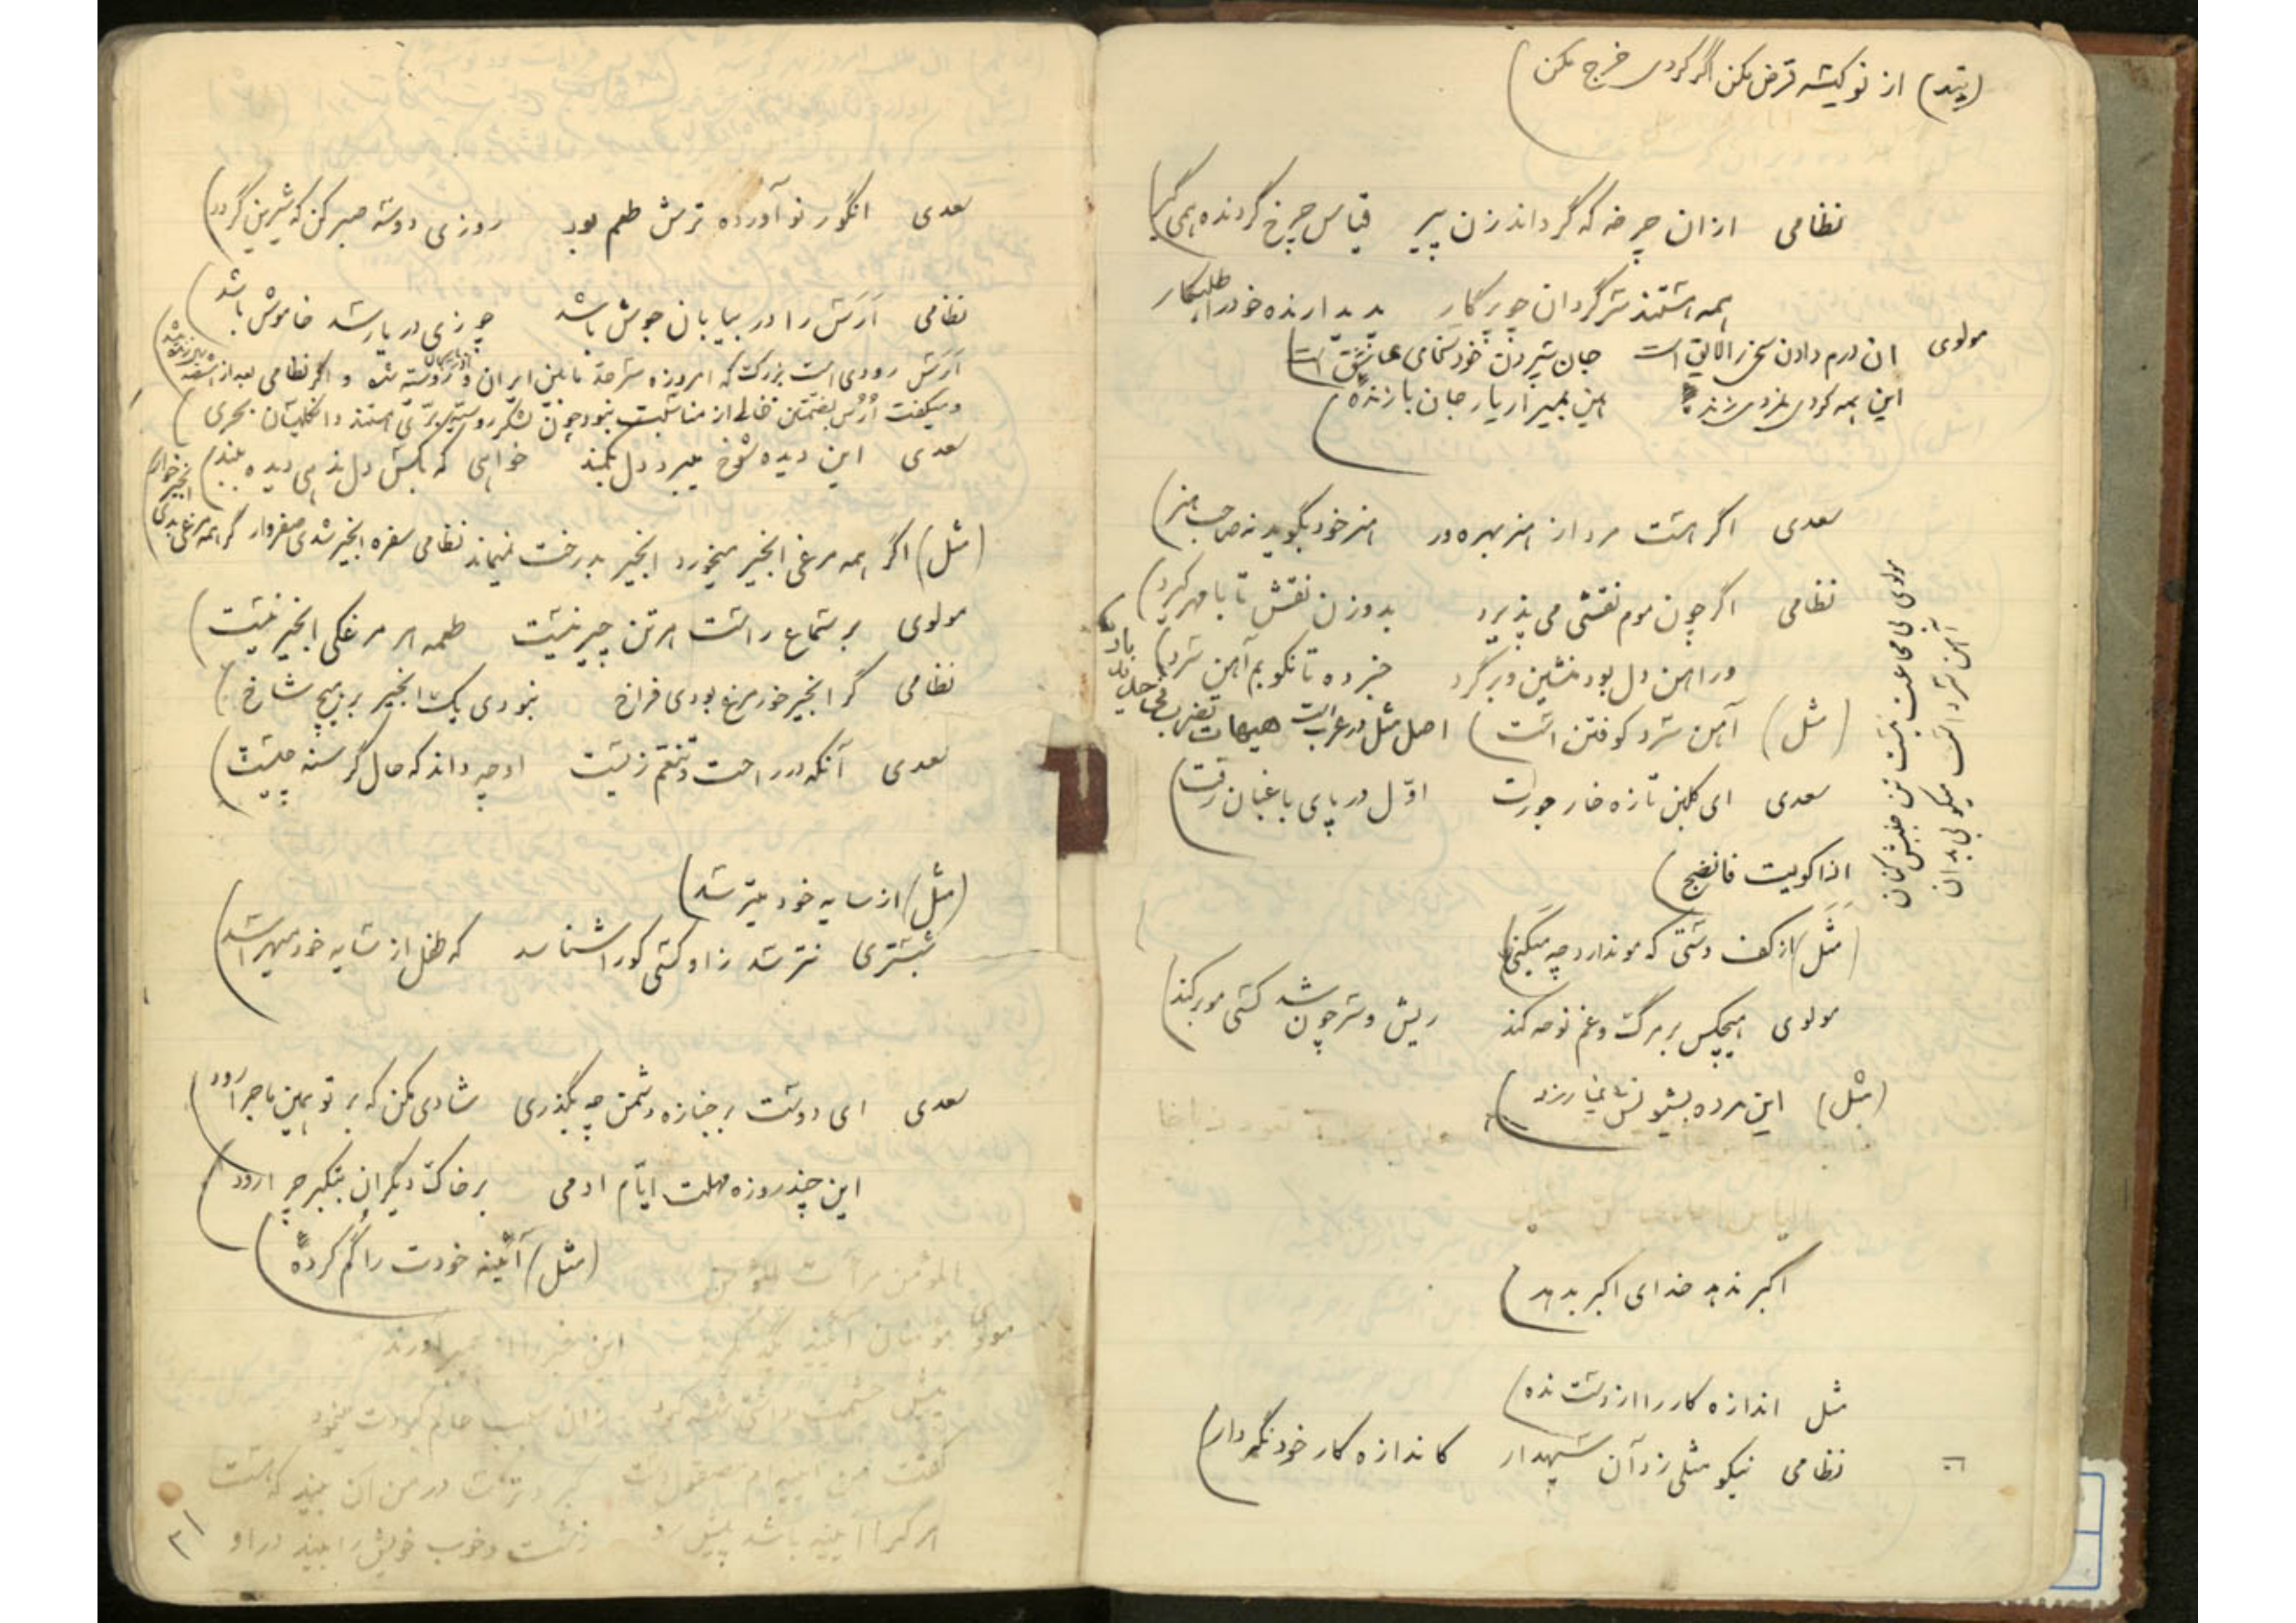 (پند) از نو کیسه قرض مکن اگر کردی خرج مکن)
نظامی ازان چرخه که گرداند زن پیر قیاس چرخ گردنده همی گیر)
همه هستند سرگردان چو پرگار پدیدارنده خود را طلبکار
مولوی ان درم دادن سخی را لایق است جان سپردن خود سخای عاشق است)
سعدی اگر هست مرد از هنر بهره ور هنر خود بگوید نه صاحب هنر)
نظامی اگر چون موم نقشی می پذیرد بدو زن نقش تا با مهر گیرد)
ور اهن دل بود منشین و برگرد خبر ده تا نکوبم آهن سرد)
(مثل) آهن سرد کوفتن است) اصل مثل در عرب است هیهات تضرب فی حدید بارد
مولوی بی مجاعت نیست تن جنبش کنان
آهن سرد است میکوبی بدان
سعدی ای گلبن تازه خار جورت اوّل در پای باغبان رفت)
اذا کویت فانضج)
(مثل) از کف دستی که مو ندارد چه میکنی)
مولوی هیچکس بر مرگ و غم نوحه کند ریش و سر چون شد کسی مو بر کند)
(مثل) این مرده بشیونش نمی ارزد)
اکبر ندهد خدای اکبر بدهد)
مثل اندازه کار را از دست نده)
نظامی نیکو مثلی زد آن سپهدار کاندازه کار خود نگهدار)
سعدی انگور نو آورده ترش طعم بود روزی دو سه صبر کن که شیرین گردد)
نظامی اَرَس را در بیابان جوش باشد چو زی دریا رسد خاموش باشد)
اَرَس رودی است بزرگ که امروزه سرحد مابین ایران و روسیه و اگر نظامی بعد از
سعدی این دیده شوخ میبرد دل بکمند خواهی که بکس دل ندهی دیده ببند)
(مثل) اگر همه مرغی انجیر میخورد انجیر بدرخت نمیماند نظامی سفره انجیر شدی صفروار گر همه مرغی بدی
انجیر خوار)
مولوی بر سماع راست هر تن چیر نیست طعمه هر مرغکی انجیر نیست)
نظامی گر انجیر خور مرغ بودی فراخ نبودی یک انجیر بر هیچ شاخ)
سعدی آنکه در راحت و تنعّم زیست او چه داند که حال گرسنه چیست)
(مثل) از سایه خود میترسد)
شبستری نترسد زو کسی کو را شناسد که طفل از سایه خود میهراسد)
سعدی ای دوست بر جنازه دشمن چه بگذری شادی مکن که بر تو همین ماجرا رود)
این چند روزه مهلت ایّام ادمی بر خاک دیگران بتکبر چرا رود)
(مثل) آئینه خودت را گم کرده)
المؤمن مرآت المؤمن
مولوی مومنان آئینه یکدیگرند این خبر را از پیمبر آورند
پیش چشمت داشتی شیشه کبود زان سبب عالم کبودت مینمود
گفت من آئینه ام مصقول دست ترک و در من آن بیند که هست
هر کرا آئینه باشد پیش رو زشت و خوب خویش را بیند در او
۳۱